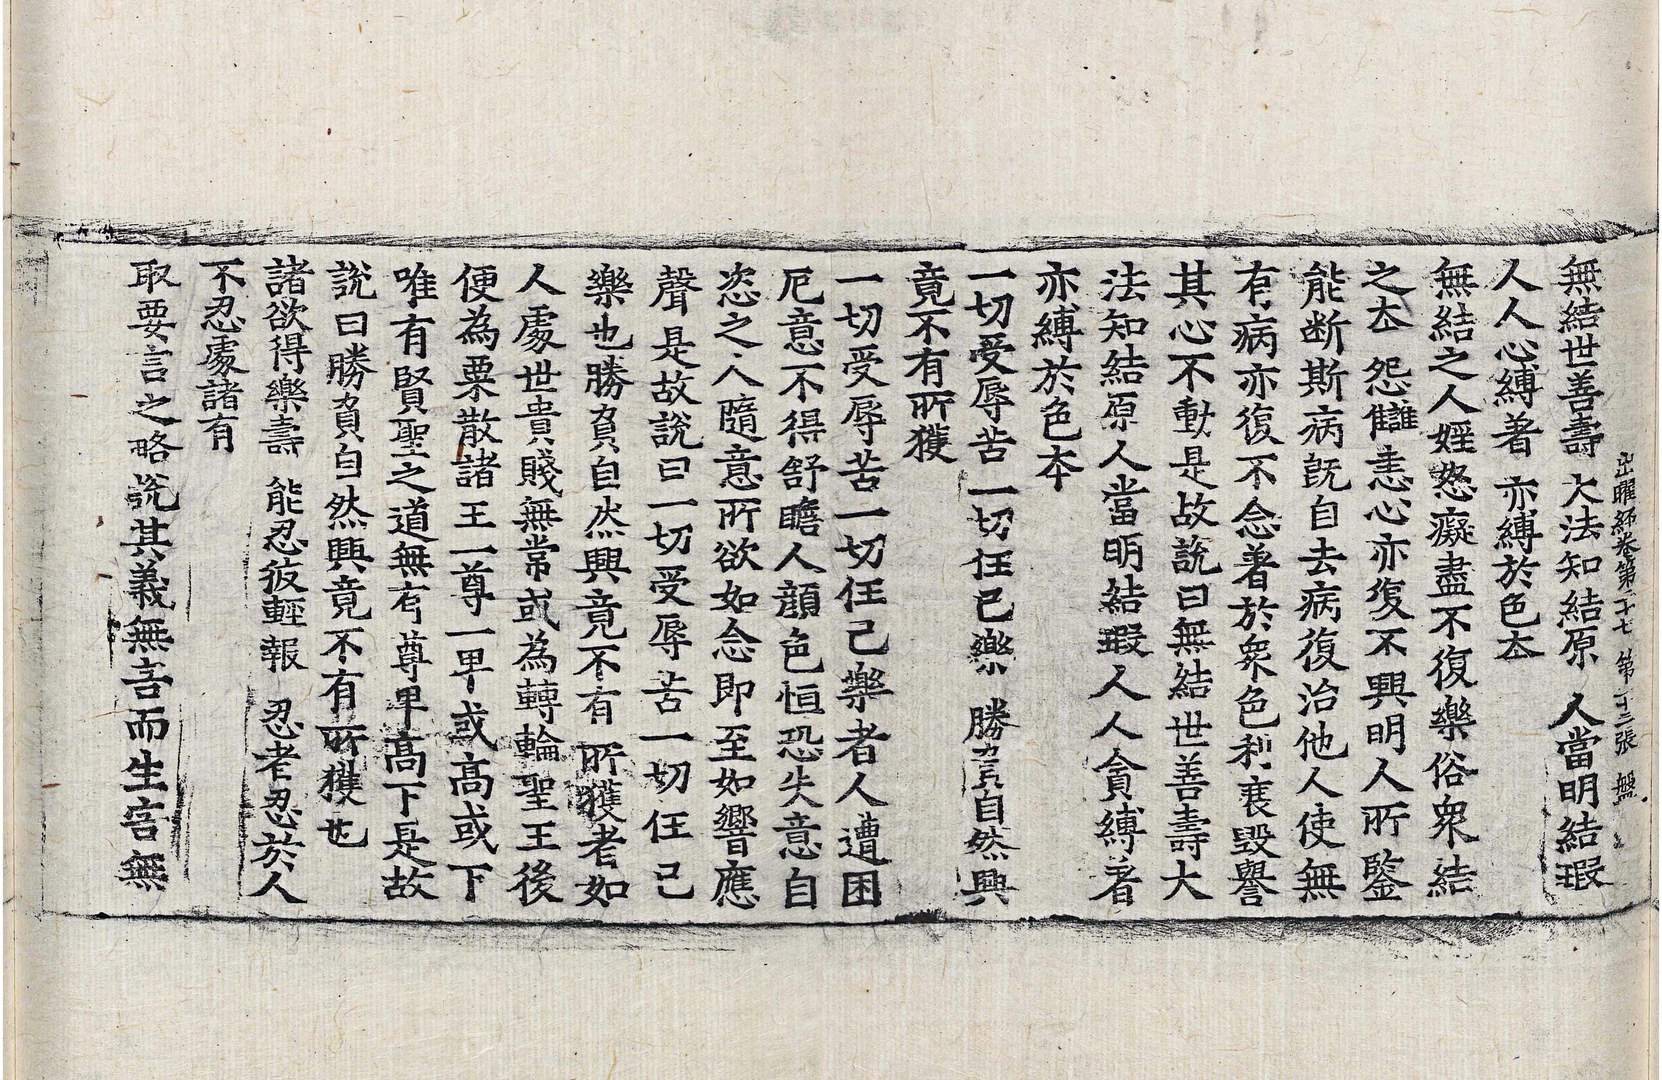 出曜經卷第二十七 第十三張 盤
無結世善壽 大法知結原 人當明結瑕
人人心縛著 亦縛於色夲
無結之人婬怒癡盡不復樂俗衆結
之夲 怨讎恚心亦復不興明人所鑒
能断斯病旣自去病復治他人使無
有病亦復不念著於衆色利衰毀譽
其心不動是故說曰無結世善壽大
法知結原人當明結瑕人人貪縛著
亦縛於色夲
一切受辱苦 一切任己樂 勝負自然興
竟不有所獲
一切受辱苦一切任己樂者人遭困
厄意不得舒瞻人顔色恒恐失意自
恣之人隨意所欲如念即至如響應
聲是故說曰一切受辱苦一切任己
樂也勝負自然興竟不有所獲者如
人處世貴賤無常或為轉輪聖王後
便為粟散諸王一尊一卑或高或下
唯有賢聖之道無有尊卑高下是故
說曰勝負自然興竟不有所獲也
諸欲得樂壽 能忍彼輕報 忍者忍於人
不忍處諸有
取要言之略說其義無害而生害無